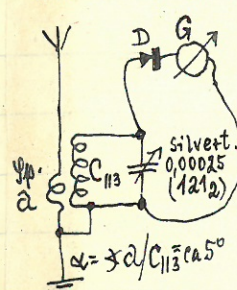 D G
C113
silvert.
0,00025
(1212)
a
α = ∢ a/C113 = ca 5°